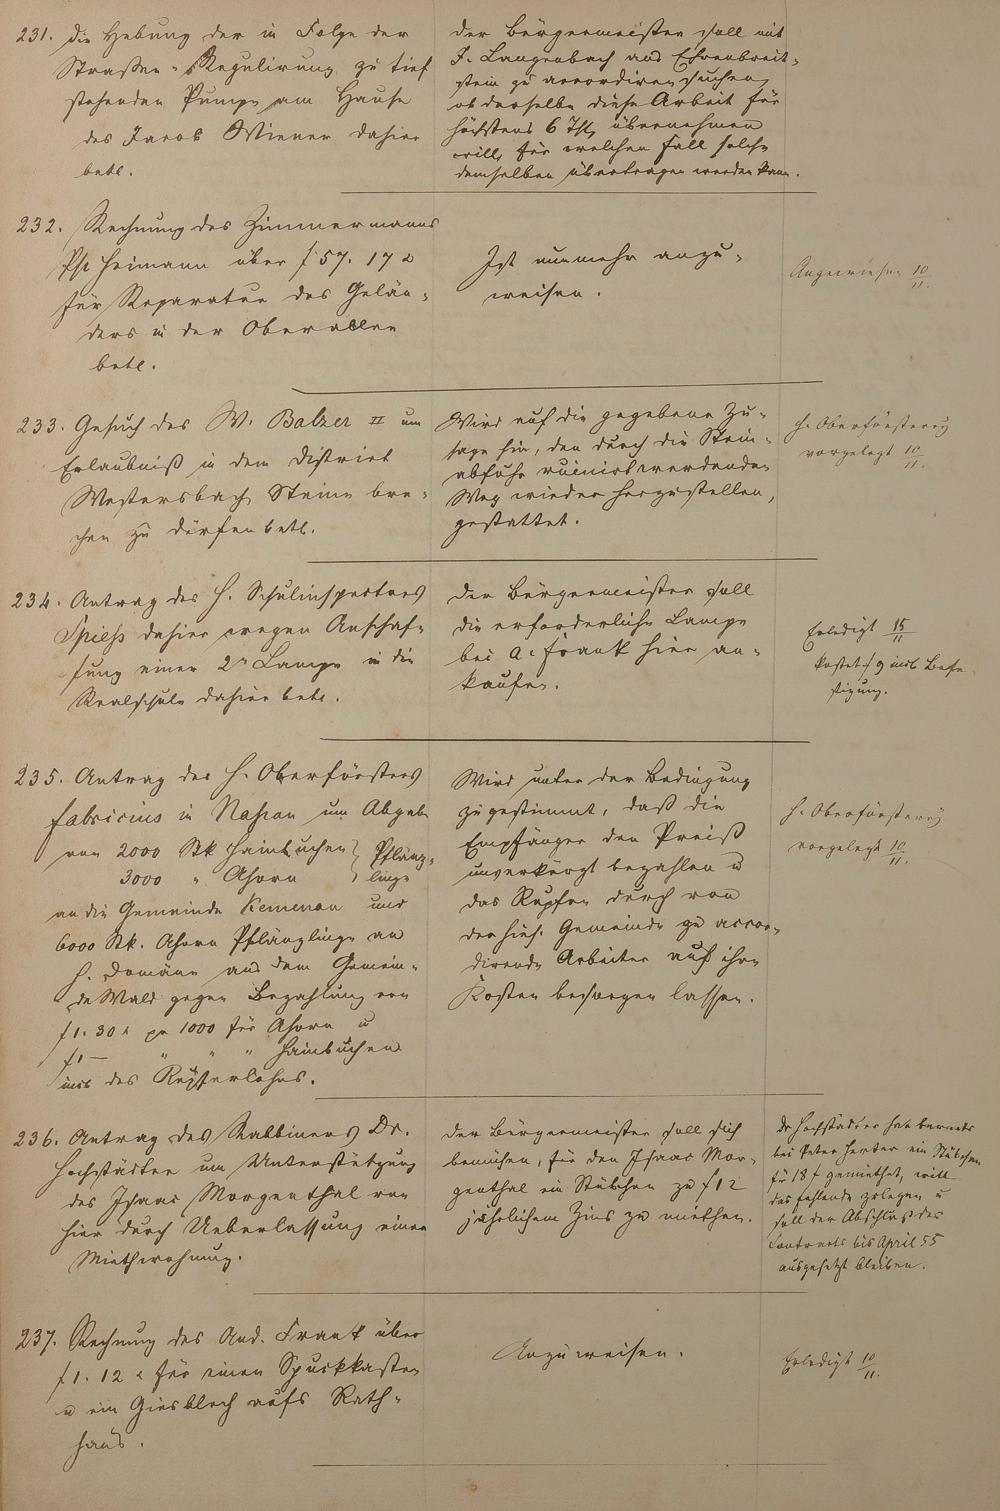 231. die Hebung der in Folge der
Straßen-Regulirung zu tief
stehenden Pumpe am Hause
des Jacob Wiener dahier
betr.
Der Bürgermeister soll mit
J. Langenbach aus Ehrenbreit-
stein zu accordiren suchen,
ob derselbe diese Arbeit für
höchstens 6 Thl. übernehmen
will, für welchen Fall solche
demselben übertragen werden kann.
232. Rechnung des Zimmermanns
Ph. Heimann über f 57. 17 x
für Reparatur des Gelän-
ders in der Oberallee
betr.
Ist nunmehr anzu-
weisen.
Angewiesen 10/11.
233. Gesuch des W. Balzer II um
Erlaubniß in dem District
Westersbach Steine bre-
chen zu dürfen betr.
Wird auf die gegebene Zu-
sage hin, den durch die Stein-
abfuhr ruinirt werdenden
Weg wieder herzustellen,
gestattet.
H. Oberförsterey
vorgelegt 10/11.
234. Antrag des H. Schulinspectors
Spieß dahier wegen Anschaf-
fung einer 2n Lampe in die
Realschule dahier betr.
Der Bürgermeister soll
die erforderliche Lampe
bei A. Frank hier an-
kaufen.
Erledigt 15/11
kostet f 9 incl. Befe-
stigung.
235. Antrag des H. Oberförsters
Fabricius in Nassau um Abgabe
von 2000 Stk Hainbuchen } Pflänz-
3000 " Ahorn } linge
an die Gemeinde Kemenau und
6000 Stk. Ahorn Pflänzlinge an
H. Domäne aus dem Gemein-
de Wald gegen Bezahlung von
f 1. 30 x pr 1000 für Ahorn u
f 1 — " " " Hainbuchen
incl. des Rupferlohns.
Wird unter der Bedingung
zugestimmt, daß die
Empfänger den Preiß
unverkürzt bezahlen u
das Rupfen durch von
der hies. Gemeinde zu accor-
dirende Arbeiter auf ihre
Kosten besorgen lassen.
H. Oberförsterey
vorgelegt 10/11.
236. Antrag des Rabbiners Dr.
Hochstädter um Unterstützung
des Isaac Morgenthal von
hier durch Ueberlassung einer
Miethwohnung.
Der Bürgermeister soll sich
bemühen, für den Isaac Mor-
genthal ein Stübchen zu f 12
jährlichem Zins zu miethen.
Dr Hochstädter hat bereits
bei Peter Herter ein Stübchen
für 18 f gemiethet, will
das fehlende zulegen u
soll der Abschluß des
Contracts bis April 55
ausgesetzt bleiben.
237. Rechnung des And. Frank über
f 1. 12 x für einen Spuckkasten
u ein Giesblech aufs Rath-
haus.
Anzuweisen.
Erledigt 10/11.